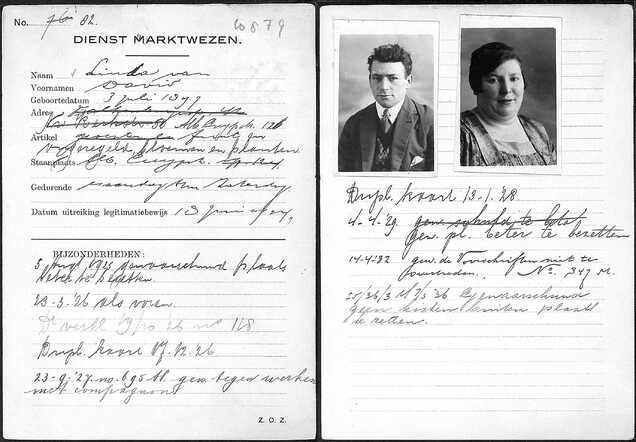 No. 76 82.
60879
DIENST MARKTWEZEN.
Naam Linda van
Voornamen David
Geboortedatum 3 Juli 1879
Adres
Kerkstr 56 Alb Cuypstr. 126
Artikel fruit en
bloemen en planten
Staanplaats Alb. Cuypstr.
Gedurende maandag t/m Zaterdag.
Datum uitreiking legitimatiebewijs 13 Juni
BIJZONDERHEDEN:
5 Aug. 1925 gewaarschuwd plaats
beter te bezetten
23-3-'26 als voren.
168
Dupl. kaart 17-12-26
23-9-'27. no. 695 M. gew. tegen werken
met compagnon
Z. O. Z.
Dupl. kaart 13-1-28.
4-4-29.
gew. pl. beter te bezetten
14-4-32 gew. de Voorschriften niet te
overtreden. No. 347 M.
25/26/3 M 7/3 '36 Gewaarschuwd
geen kisten buiten plaats
te zetten.